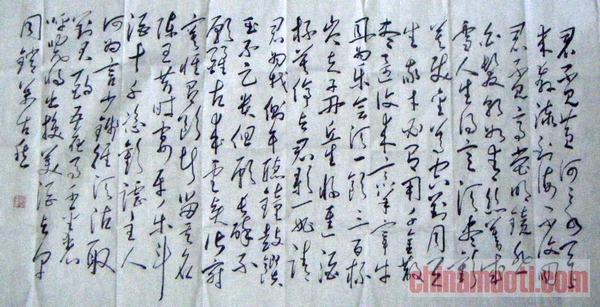 君不见黄河之水天上
来奔流到海不复回
君不见高堂明镜悲
白发朝如青丝暮成
雪人生得意须尽欢
莫使金樽空对月天
生我材必有用千金散
尽还复来烹羊宰牛
且为乐会须一饮三百杯
岑夫子丹丘生将进酒
杯莫停与君歌一曲请
君为我侧耳听钟鼓馔
玉不足贵但愿长醉不
愿醒古来圣贤皆寂
寞惟有饮者留其名
陈王昔时宴平乐斗
酒十千恣欢谑主人
何为言少钱径须沽取
对君酌五花马千金裘
呼儿将出换美酒与尔
同销万古愁
chinamoti.com